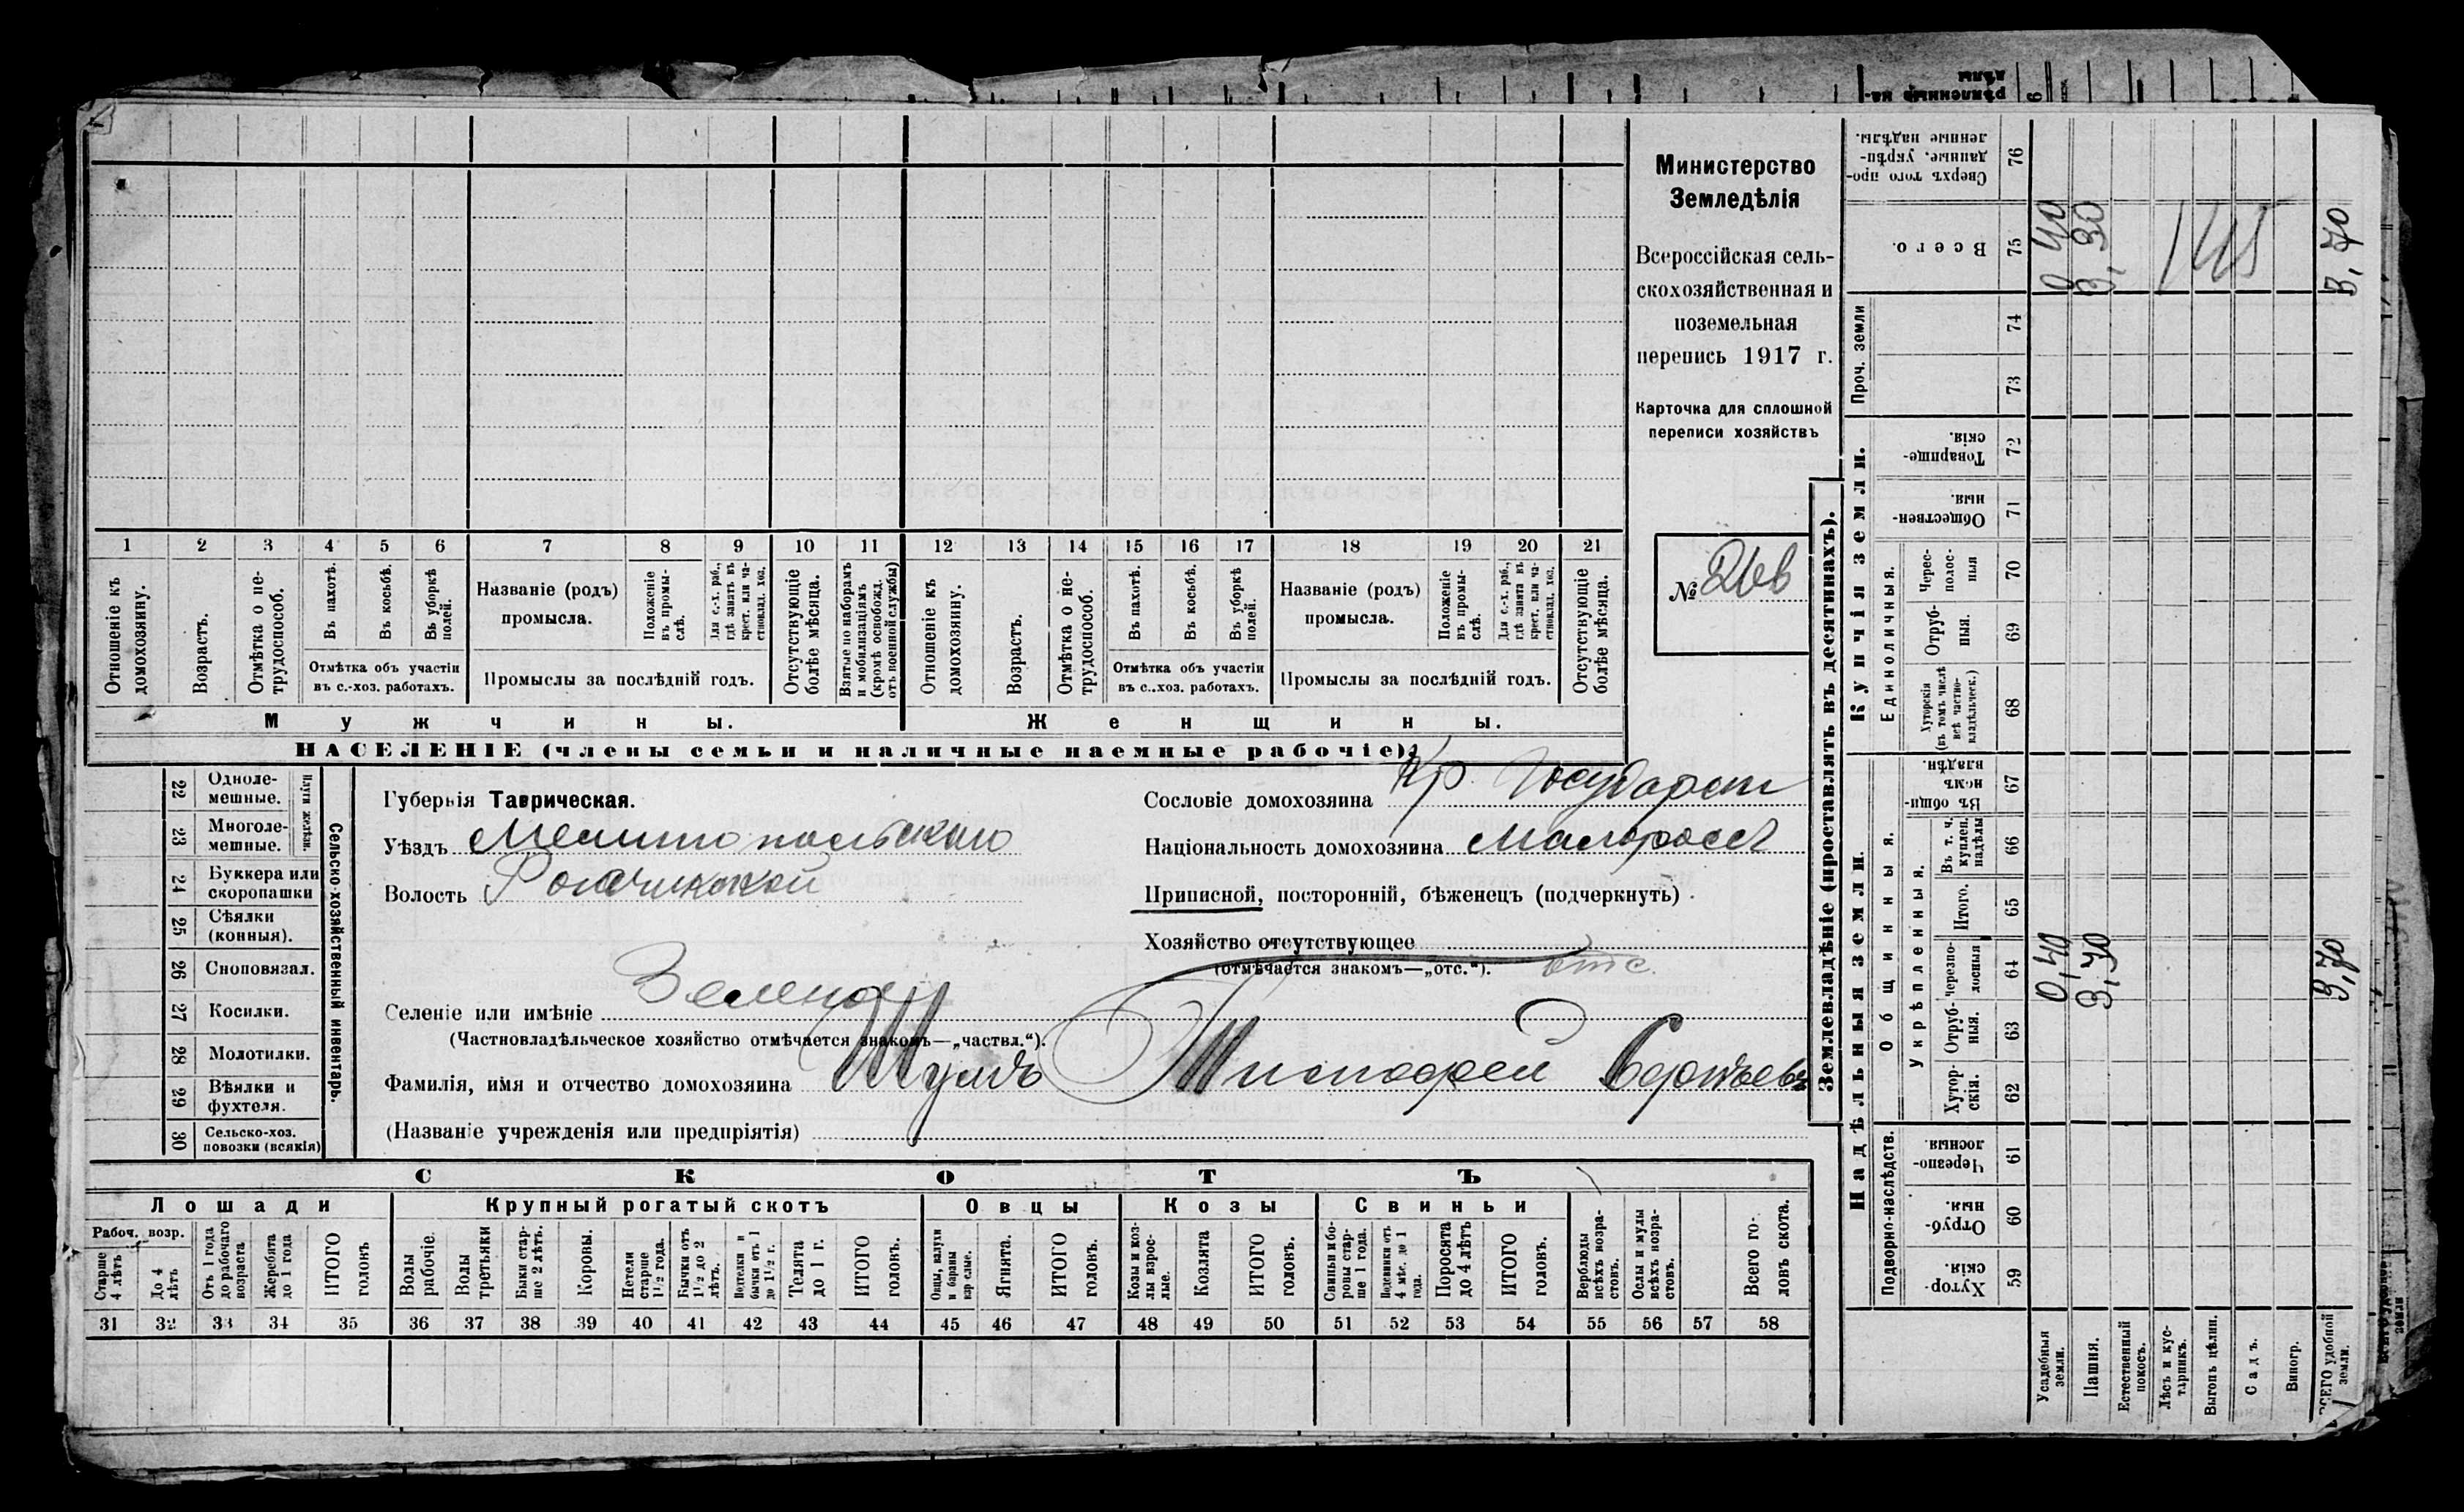 Министерство
Земледѣлія
Всероссійская сель-
скохозяйственная и
поземельная
перепись 1917 г.
Карточка для сплошной
переписи хозяйствъ
№ 266
1 2 3 4 5 6 7 8 9 10 11 12 13 14 15 16 17 18 19 20 21
Отношеніе къ домохозяину.
Возрастъ.
Отмѣтка о не-трудоспособ.
Въ пахотѣ.
Въ косьбѣ.
Въ уборкѣ полей.
Отмѣтка объ участіи
въ с.-хоз. работахъ.
Названіе (родъ)
промысла.
Положеніе въ промы-слѣ.
Для с.-х. раб., гдѣ занятъ въ крест. или ча-стновлад. хоз.
Промыслы за послѣдній годъ.
Отсутствующіе болѣе мѣсяца.
Взятые по наборамъ и мобилизаціямъ (кромѣ освобожд. отъ военной службы)
Отношеніе къ домохозяину.
Возрастъ.
Отмѣтка о не-трудоспособ.
Въ пахотѣ.
Въ косьбѣ.
Въ уборкѣ полей.
Отмѣтка объ участіи
въ с..хоз. работахъ.
Названіе (родъ)
промысла.
Положеніе въ промы-слѣ.
Для с.-х. раб., гдѣ занята въ крест. или ча-стновлад. хоз.
Промыслы за послѣдній годъ.
Отсутствующіе болѣе мѣсяца.
Мужчины.
Женщины.
НАСЕЛЕНІЕ (члены семьи и наличные наемные рабочіе).
22 Одноле-мешные.
23 Многоле-мешные.
Плуги желѣзн.
24 Буккера или скоропашки
25 Сѣялки (конныя).
26 Сноповязал.
27 Косилки.
28 Молотилки.
29 Вѣялки и фухтеля.
30 Сельско-хоз. повозки (всякія)
Сельско-хозяйственный инвентарь.
Губернія Таврическая.
Уѣздъ Мелитопольскаго
Волость Рогачикской
Сословіе домохозяина Кр. Государст
Національность домохозяина Малороссъ
Приписной, посторонній, бѣженецъ (подчеркнуть)
Хозяйство отсутствующее
(отмѣчается знакомъ—„отс.“). отс.
Селеніе или имѣніе Зеленой
(Частновладѣльческое хозяйство отмѣчается знакомъ—„частвл.“).
Фамилія, имя и отчество домохозяина Тимофей
(Названіе учрежденія или предпріятія)
СКОТЪ
Лошади
Крупный рогатый скотъ
Овцы
Козы
Свиньи
Рабоч. возр.
Старше 4 лѣтъ
До 4 лѣтъ
Отъ 1 года до рабочаго возраста
Жеребята до 1 года
ИТОГО головъ
Волы рабочіе.
Волы третьяки
Быки стар-ше 2 лѣтъ.
Коровы.
Нетели старше 1½ года.
Бычки отъ 1½ до 2 лѣтъ.
бычки отъ 1 до 1½ г.
Телята до 1 г.
ИТОГО головъ.
Ягнята.
ИТОГО головъ.
Козы и коз-лы взрос-лые.
Козлята
ИТОГО головъ.
Свиньи и бо-ровы стар-ше 1 года.
Подсвинки отъ 4 мѣс. до 1 года.
Поросята до 4 лѣтъ
ИТОГО головъ.
Верблюды всѣхъ возра-стовъ.
Ослы и мулы всѣхъ возра-стовъ.
Всего го-ловъ скота.
31 32 33 34 35 36 37 38 39 40 41 42 43 44 45 46 47 48 49 50 51 52 53 54 55 56 57 58
Землевладѣніе (проставлять въ десятинахъ).
Надѣльныя земли.
Купчія земли.
Проч. земли
Подворно-наслѣдств.
Общинныя.
Укрѣпленныя.
Единоличныя.
Хутор-скія. 59
Отруб-ныя. 60
Черезпо-лосныя 61
Хутор-скія. 62
Отруб-ныя. 63
черезпо-лосныя 64
Итого. 65
Въ т. ч. куплен. надѣлы 66
Въ общи-номъ владѣн. 67
Хуторскія (въ томъ числѣ всѣ частно-владѣльческ.) 68
Отруб-ныя. 69
Черес-полос-ныя 70
Обществен-ныя. 71
Товарище-скія. 72
73
74
Всего. 75
Сверхъ того про-данные, укрѣп-ленные надѣлы. 76
Усадебныя земли. 0,40 0 40
Пашня. 3,30 3,30
Естественный покосъ.
Лѣсъ и кус-тарникъ.
Выгонъ цѣлин.
Садъ.
Виногр.
ВСЕГО удобной земли. 3,70 3,70
145